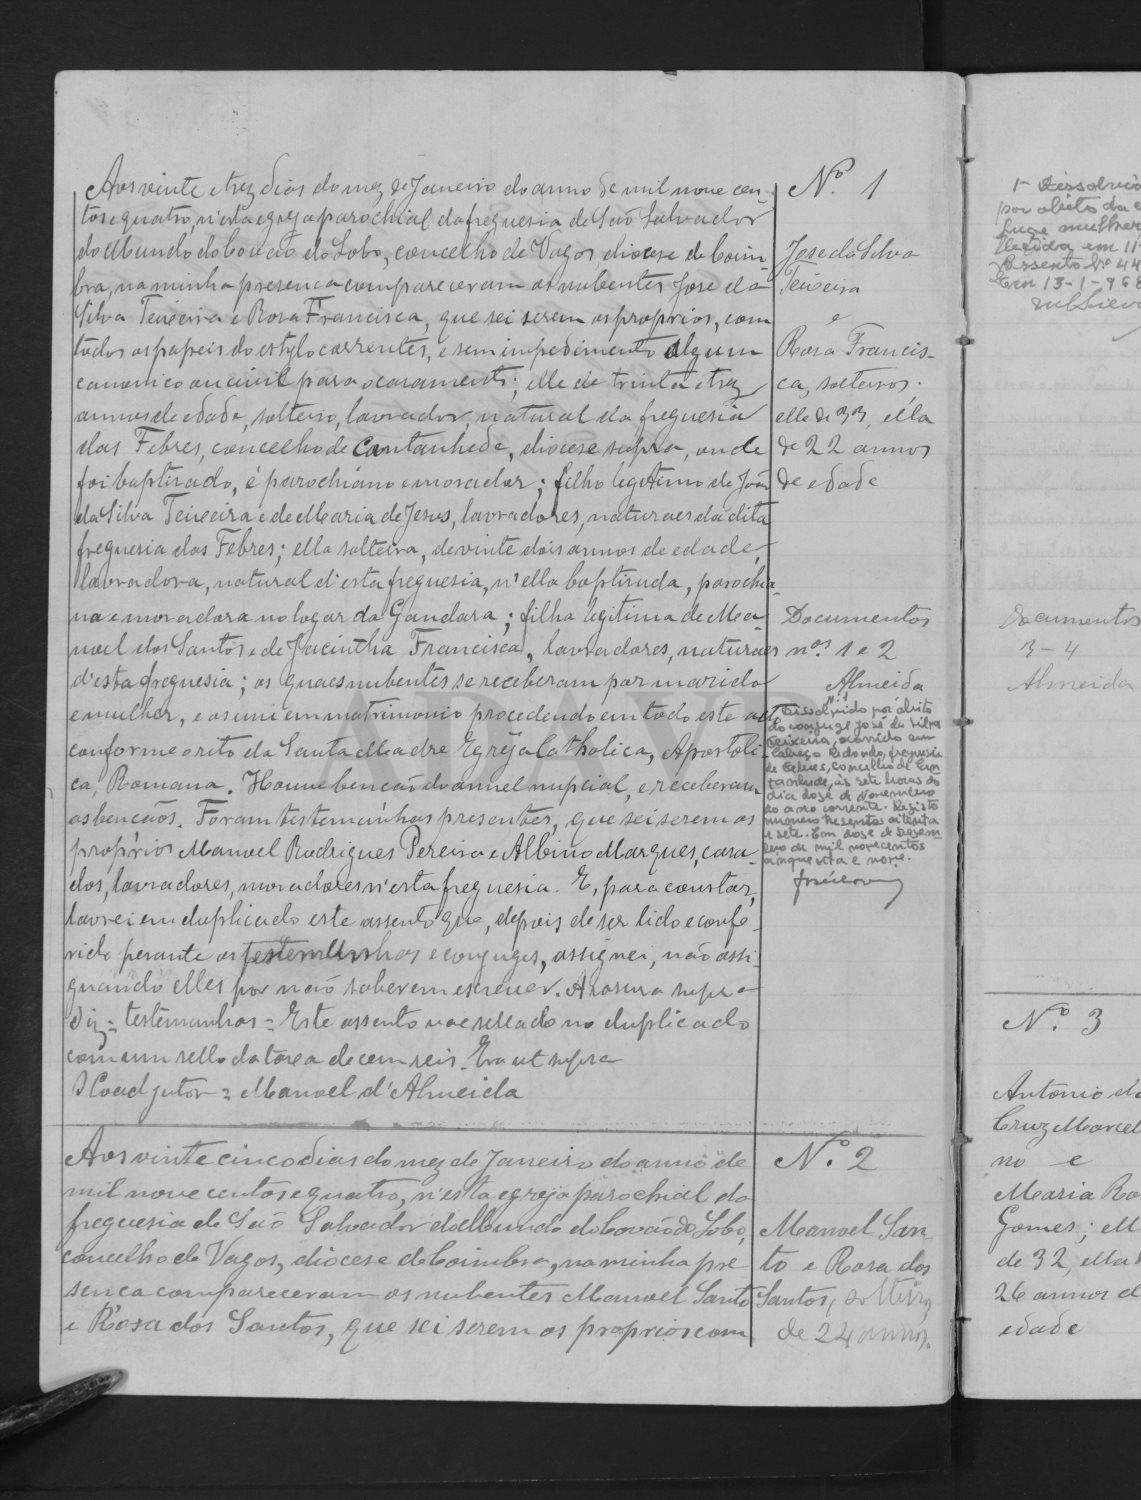 Aos vinte e trez dias do mez de Janeiro do anno de mil nove cen-
tos e quatro, n'esta egreja parochial da freguesia de São Salvador
do Mundo do Covão do Lobo, concelho de Vagos, diocese de Coim-
bra, na minha presença compareceram os nubentes José da
Silva Teixeira e Rosa Francisca, que sei serem os proprios, com
todos os papeis do estylo correntes, e sem impedimento algum
canonico ou civil para o casamento; elle de trinta e trez
annos de edade, solteiro, lavrador, natural da freguesia
das Febres, concelho de Cantanhede, diocese supra, onde
foi baptisado, é parochiano e morador; filho legitimo de João
da Silva Teixeira e de Maria de Jesus, lavradores, naturaes da dita
freguesia das Febres; ella solteira, de vinte dois annos de edade,
lavradora, natural d'esta freguesia, n'ella baptisada, parochia-
na e moradora no logar da Gandara; filha legitima de Ma-
noel dos Santos e de Jacintha Francisca, lavradores, naturaes
d'esta freguesia; os quaes nubentes se receberam por marido
e mulher, e os uni em matrimonio procedendo em todo este acto
conforme o rito da Santa Madre Egreja Catholica, Apostoli-
ca, Romana. Houve benção do annel nupcial, e receberam
as bençãos. Foram testemúnhas presentes, que sei serem os
proprios Manoel Rodrigues Pereira e Albino Marques, casa-
dos, lavradores, moradores n'esta freguesia. E, para constar,
lavrei em duplicado este assento que, depois de ser lido e confe-
rido perante as testemunhas e conjuges, assignei, não assi-
gnando elles por não saberem escrever. A rasura supra
diz = testemunhas = Este assento vae sellado no duplicado
com um sello da taxa de cem reis. Era ut supra
O Coadjutor = Manoel d'Almeida
Nº. 1
José da Silva
Teixeira
e
Rosa Francis-
ca, solteiros.
elle de 33, ella
de 22 annos
de edade
Documentos
nos. 1 e 2
Almeida
Nº 1
Dissolvido por óbito
do conjuge José da Silva
Teixeira, ocorrido em
Cabeço Redondo, freguesia
de Febres, concelho de Can-
tanhede, às sete horas do
dia doze de Novembro
do ano corrente. Registo
numero trezentos oitenta
e sete. Em doze de Dezem-
bro de mil novecentos
cinquenta e nove.
Aos vinte cinco dias do mez de Janeiro do anno de
mil nove centos e quatro, n'esta egreja parochial da
freguesia de São Salvador do Mundo do Covão do Lobo,
concelho de Vagos, diocese de Coimbra, na minha pre-
sença compareceram os nubentes Manoel Santo
e Rosa dos Santos, que sei serem os proprios com
Nº. 2
Manoel San-
to e Rosa dos
Santos, solteiros,
de 24 annos.
1- Dissolvido
por óbito da
mulher
em 11-
Assento Nº 44
Em 13-1-968
Documentos
3-4
Almeida
Nº. 3
Antonio da
Cruz Marcel
no e
Maria Ro
Gomes; ell
de 32, ella
26 annos d
edade